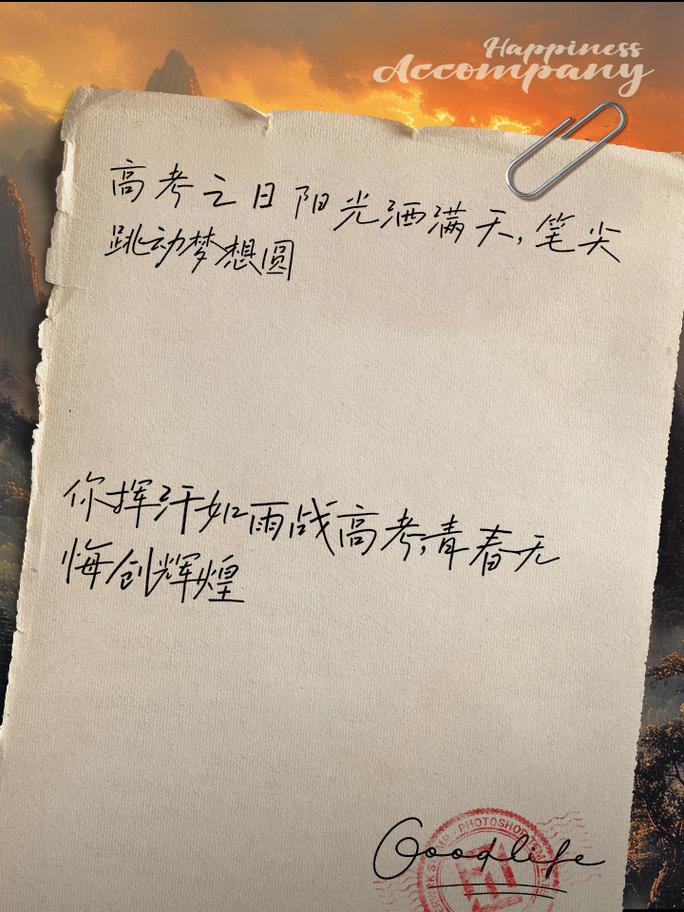 Happiness
Accompany
高考之日阳光洒满天,笔尖
跳动梦想圆
你挥汗如雨战高考,青春无
悔创辉煌
PHOTOSHOP
Goodlife